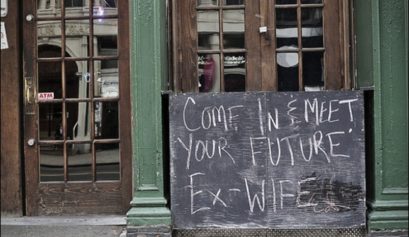 ATM
COME IN & MEET
YOUR FUTURE!
EX-WIFE